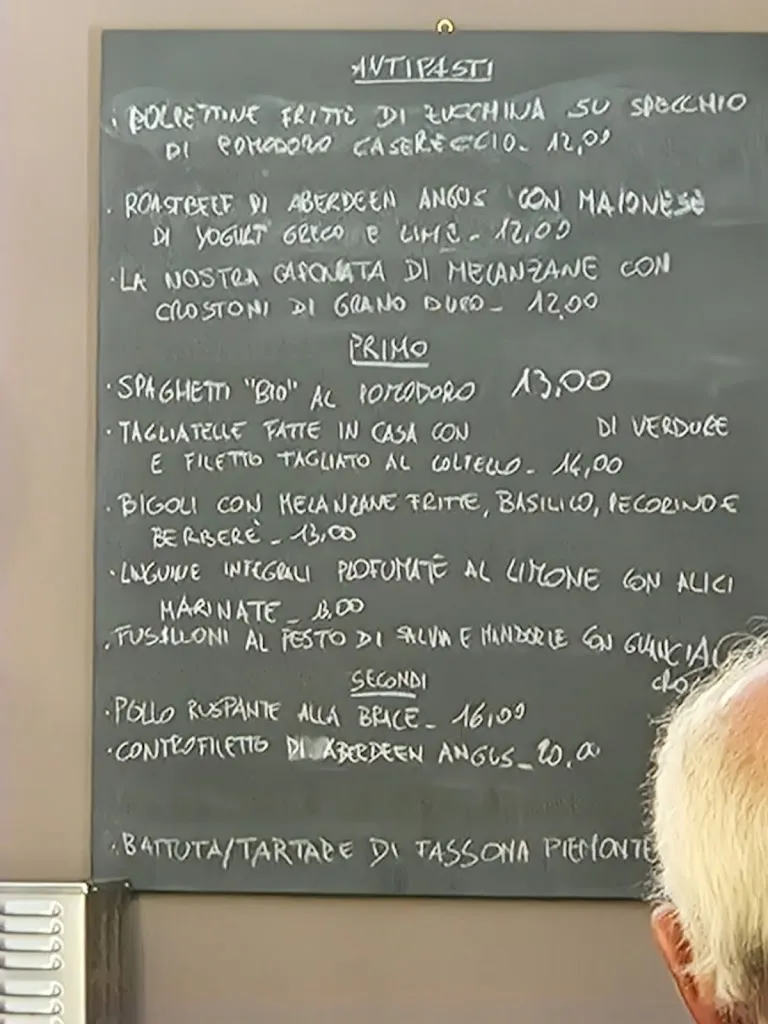 ANTIPASTI
· POLPETTINE FRITTE DI ZUCCHINA SU SPECCHIO
DI POMODORO CASERECCIO - 12,00
· ROASTBEEF DI ABERDEEN ANGUS CON MAIONESE
DI YOGURT GRECO E LIME - 12,00
· LA NOSTRA CAPONATA DI MELANZANE CON
CROSTONI DI GRANO DURO - 12,00
PRIMO
· SPAGHETTI "BIO" AL POMODORO 13,00
· TAGLIATELLE FATTE IN CASA CON DI VERDURE
E FILETTO TAGLIATO AL COLTELLO - 14,00
· BIGOLI CON MELANZANE FRITTE, BASILICO, PECORINO E
BERBERÈ - 13,00
· LINGUINE INTEGRALI PROFUMATE AL LIMONE CON ALICI
MARINATE - 13,00
· FUSILLONI AL PESTO DI SALVIA E MANDORLE CON GUANCIA
CRO
SECONDI
· POLLO RUSPANTE ALLA BRACE - 16,00
· CONTROFILETTO DI ABERDEEN ANGUS - 20,00
· BATTUTA/TARTARE DI FASSONA PIEMONTE